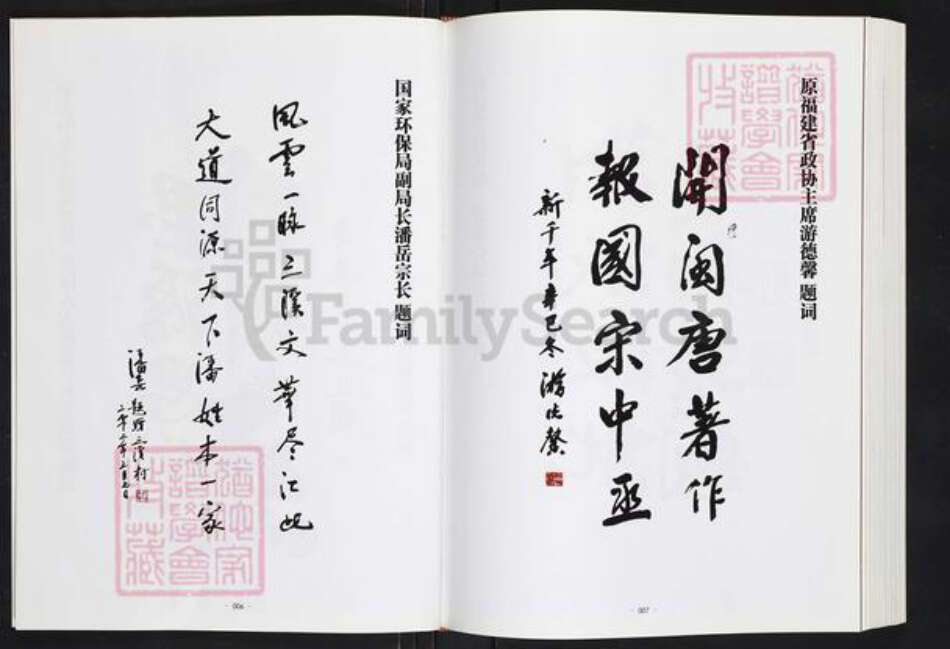 原福建省政协主席游德馨 题词
開閩唐著作
報國宋中丞
新千年辛巳冬 游德馨
- 007 -
国家环保局副局长潘岳宗长 题词
風雲一脉三溪文華尽汇此
大道同源天下潘姓本一家
潘岳 题赠三溪村
- 006 -
FamilySearch